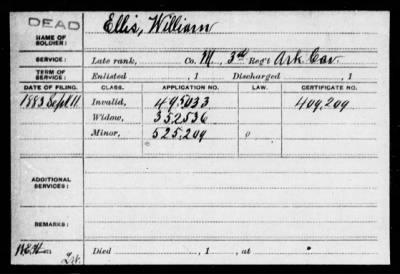 DEAD
NAME OF SOLDIER: Ellis, William
SERVICE: Late rank, Co. M, 3rd Reg't Ark Cav.
TERM OF SERVICE: Enlisted , 1 Discharged , 1
DATE OF FILING. CLASS. APPLICATION NO. LAW. CERTIFICATE NO.
1883 Sept 11 Invalid, 495033 409,209
Widow, 352536
Minor, 525,209 0
ADDITIONAL SERVICES:
REMARKS:
Died , 1 , at